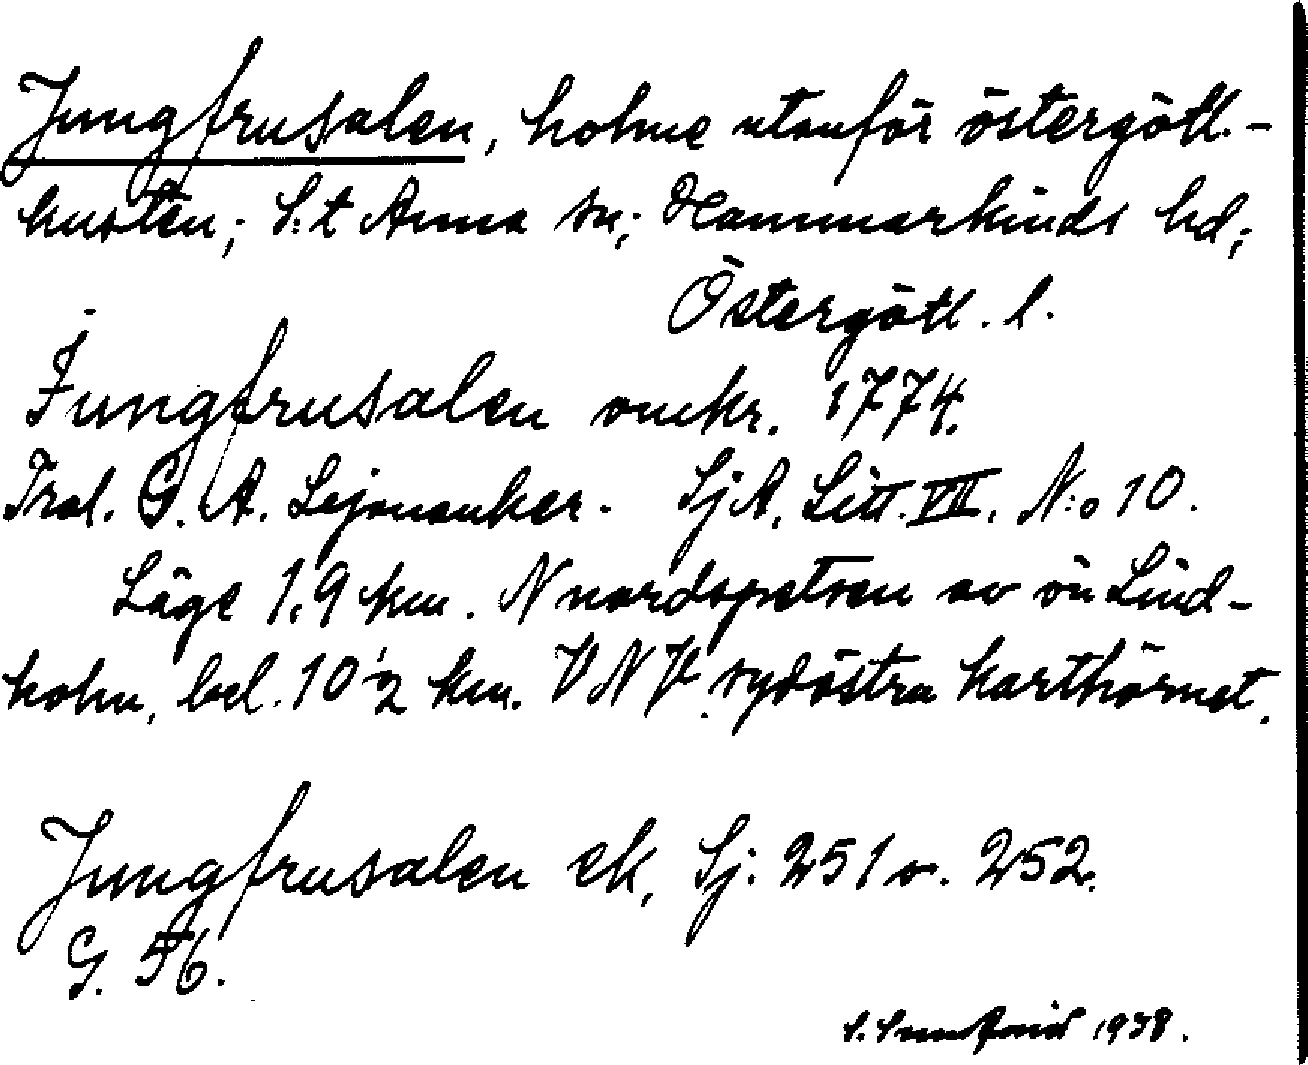 Jungfrusalen, holme utanför östergötl.-
kusten; S:t Anna sn; Hammarkinds hd;
Östergötl. l.
Jungfrusalen omkr. 1774.
Trol. G. A. Lejonanker. SjA. Litt. VII. N:o 10.
Läge 1,9 km. N nordspetsen av ön Lind-
holm, bel. 10 1/2 km. VNV. sydöstra karthörnet.
Jungfrusalen ek, Sj. 251 o. 252.
G. 56.
1938.